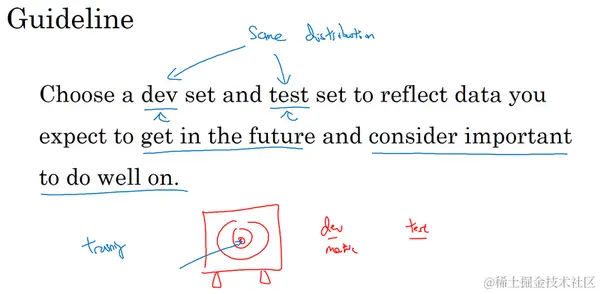 Guideline
Same distribution
Choose a dev set and test set to reflect data you
expect to get in the future and consider important
to do well on.
dev
test
metric
@稀土掘金技术社区